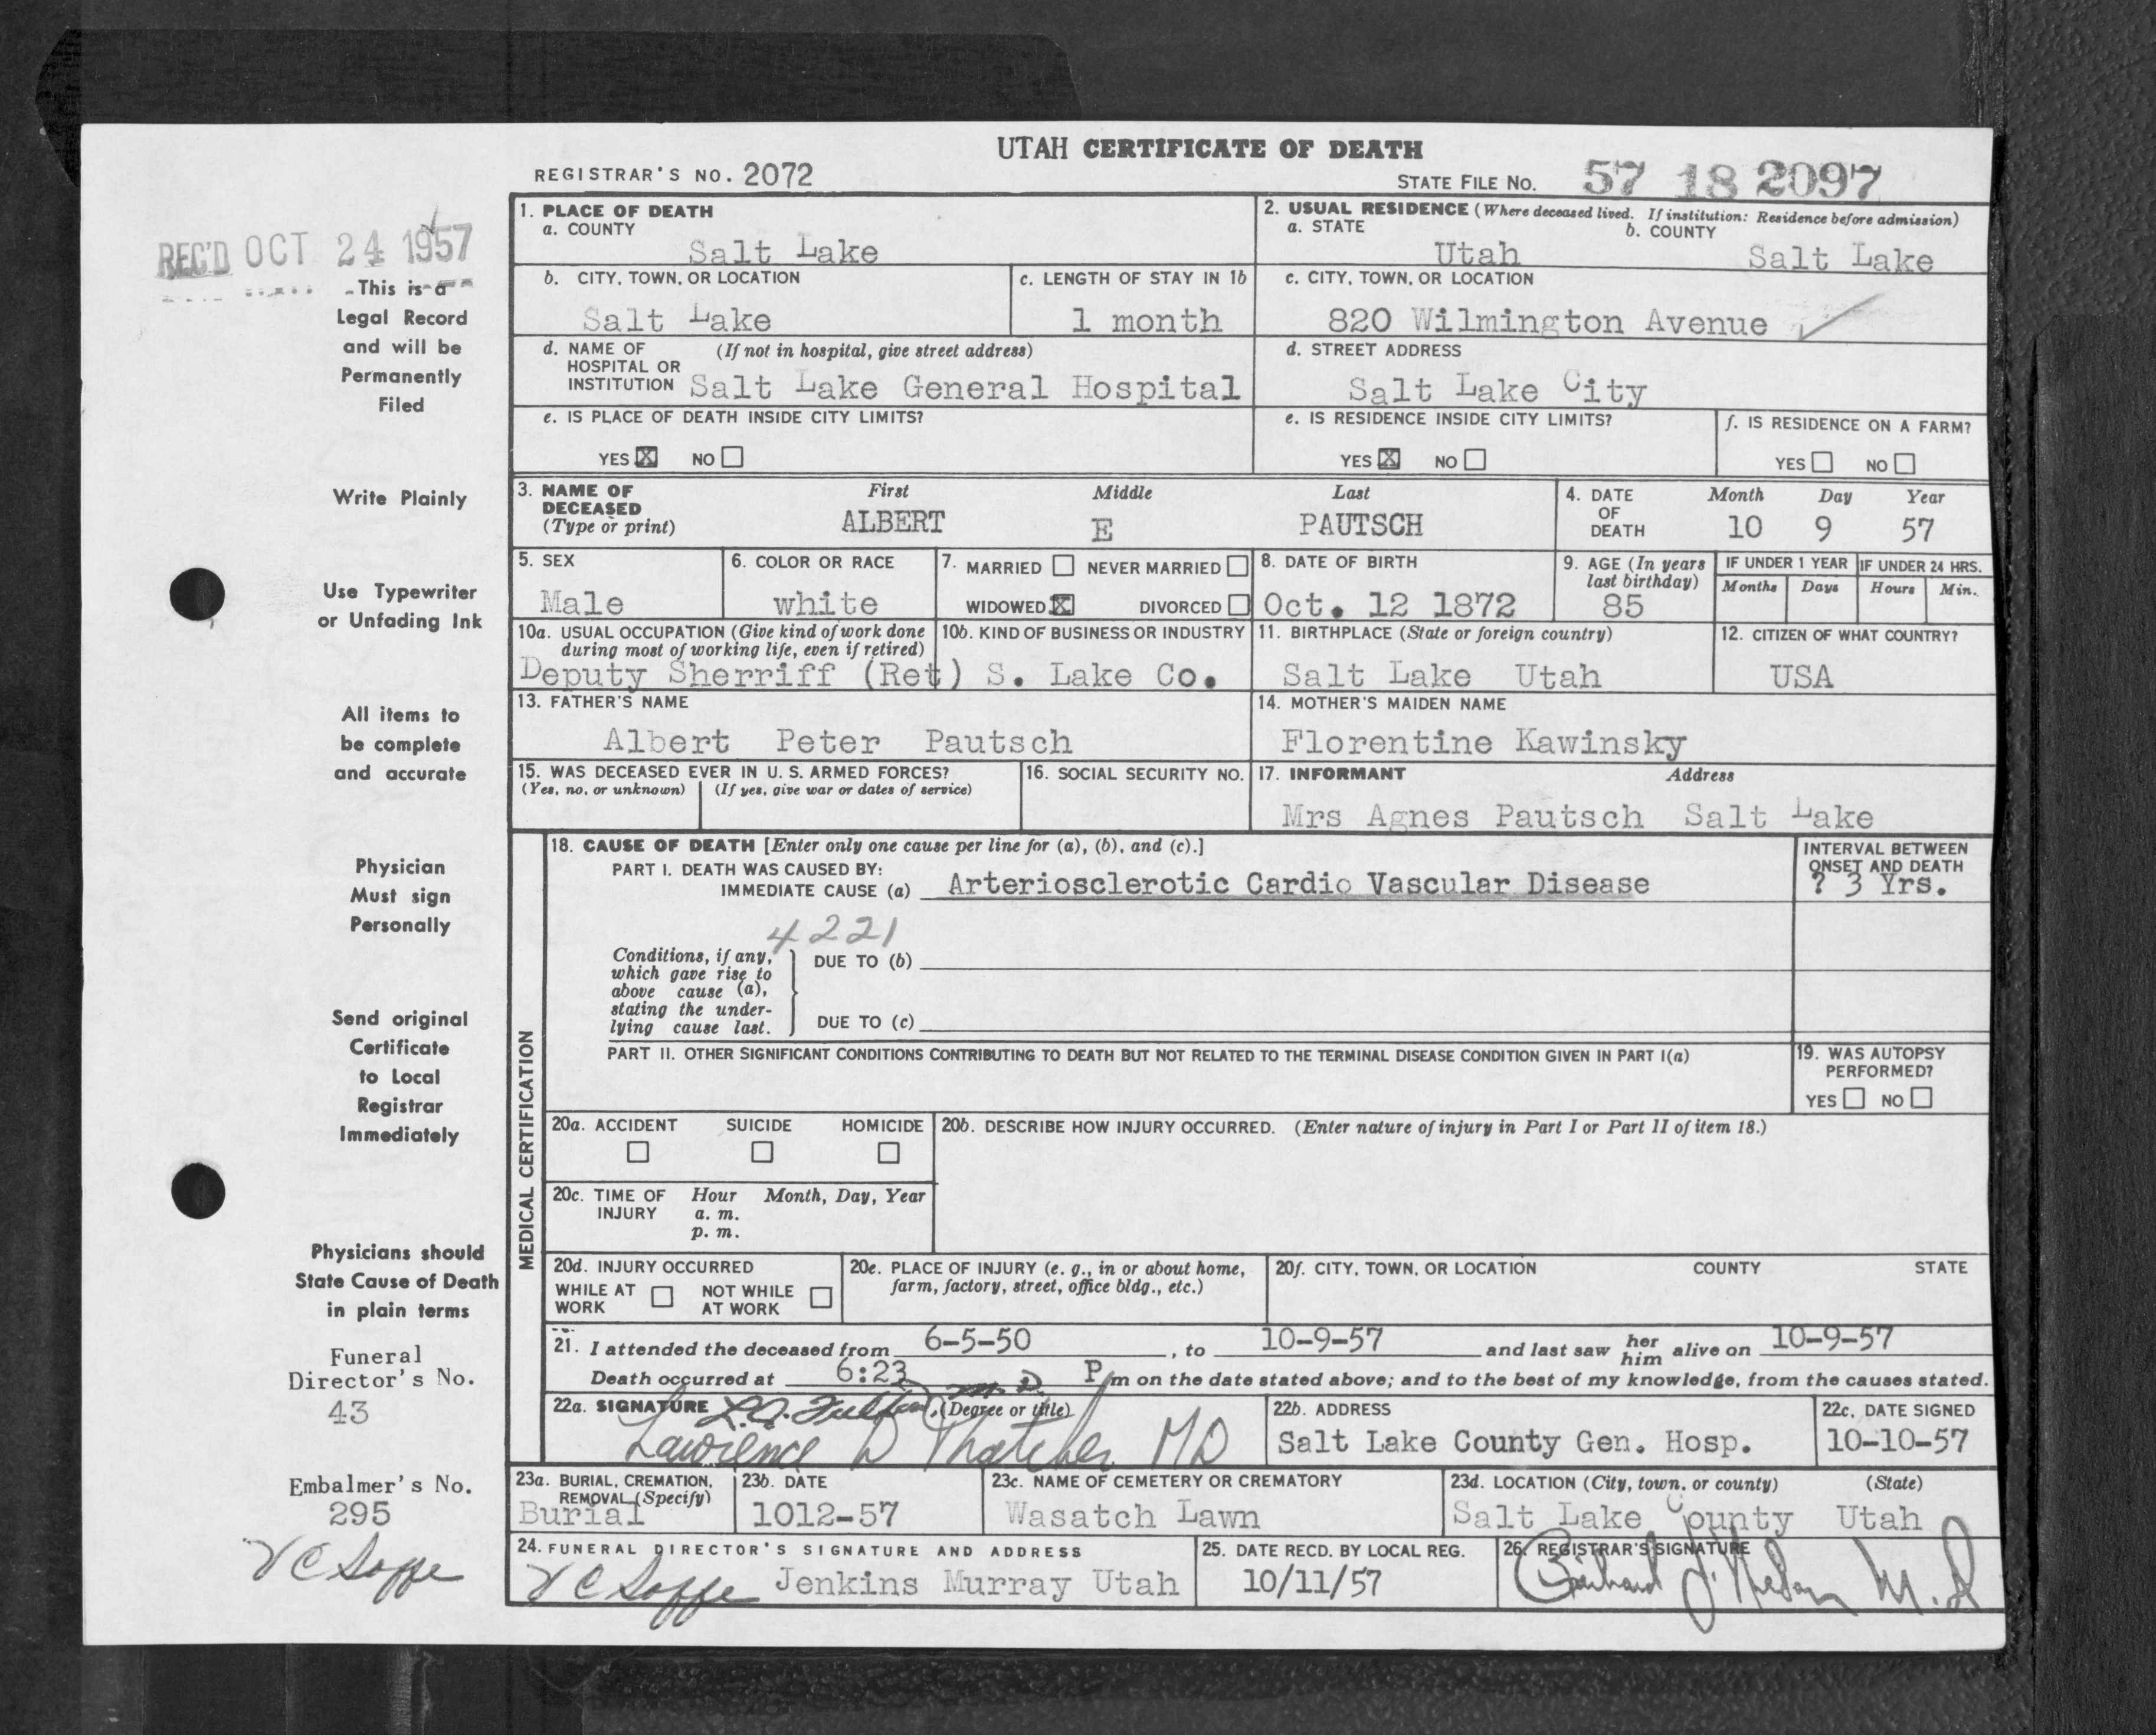 UTAH CERTIFICATE OF DEATH
REGISTRAR'S NO. 2072
STATE FILE NO. 57 18 2097
REC'D OCT 24 1957
This is a
Legal Record
and will be
Permanently
Filed
Write Plainly
Use Typewriter
or Unfading Ink
All items to
be complete
and accurate
Physician
Must sign
Personally
Send original
Certificate
to Local
Registrar
Immediately
Physicians should
State Cause of Death
in plain terms
Funeral
Director's No.
43
Embalmer's No.
295
1. PLACE OF DEATH
a. COUNTY
Salt Lake
2. USUAL RESIDENCE (Where deceased lived. If institution: Residence before admission)
a. STATE b. COUNTY
Utah Salt Lake
b. CITY, TOWN, OR LOCATION
Salt Lake
c. LENGTH OF STAY IN 1b
1 month
c. CITY, TOWN, OR LOCATION
820 Wilmington Avenue
d. NAME OF (If not in hospital, give street address)
HOSPITAL OR
INSTITUTION Salt Lake General Hospital
d. STREET ADDRESS
Salt Lake City
e. IS PLACE OF DEATH INSIDE CITY LIMITS?
YES X NO
e. IS RESIDENCE INSIDE CITY LIMITS?
YES X NO
f. IS RESIDENCE ON A FARM?
YES NO
3. NAME OF First Middle Last
DECEASED
(Type or print) ALBERT E PAUTSCH
4. DATE Month Day Year
OF
DEATH 10 9 57
5. SEX
Male
6. COLOR OR RACE
white
7. MARRIED NEVER MARRIED
WIDOWED X DIVORCED
8. DATE OF BIRTH
Oct. 12 1872
9. AGE (In years
last birthday)
85
IF UNDER 1 YEAR
Months Days
IF UNDER 24 HRS.
Hours Min.
10a. USUAL OCCUPATION (Give kind of work done
during most of working life, even if retired)
10b. KIND OF BUSINESS OR INDUSTRY
Deputy Sherriff (Ret) S. Lake Co.
11. BIRTHPLACE (State or foreign country)
Salt Lake Utah
12. CITIZEN OF WHAT COUNTRY?
USA
13. FATHER'S NAME
Albert Peter Pautsch
14. MOTHER'S MAIDEN NAME
Florentine Kawinsky
15. WAS DECEASED EVER IN U. S. ARMED FORCES?
(Yes, no, or unknown) (If yes, give war or dates of service)
16. SOCIAL SECURITY NO.
17. INFORMANT Address
Mrs Agnes Pautsch Salt Lake
MEDICAL CERTIFICATION
18. CAUSE OF DEATH [Enter only one cause per line for (a), (b), and (c).]
PART I. DEATH WAS CAUSED BY:
IMMEDIATE CAUSE (a) Arteriosclerotic Cardio Vascular Disease
INTERVAL BETWEEN
ONSET AND DEATH
? 3 Yrs.
4221
Conditions, if any,
which gave rise to
above cause (a),
stating the under-
lying cause last.
DUE TO (b)
DUE TO (c)
PART II. OTHER SIGNIFICANT CONDITIONS CONTRIBUTING TO DEATH BUT NOT RELATED TO THE TERMINAL DISEASE CONDITION GIVEN IN PART I(a)
19. WAS AUTOPSY
PERFORMED?
YES NO
20a. ACCIDENT SUICIDE HOMICIDE
20b. DESCRIBE HOW INJURY OCCURRED. (Enter nature of injury in Part I or Part II of item 18.)
20c. TIME OF Hour Month, Day, Year
INJURY a. m.
p. m.
20d. INJURY OCCURRED
WHILE AT NOT WHILE
WORK AT WORK
20e. PLACE OF INJURY (e. g., in or about home,
farm, factory, street, office bldg., etc.)
20f. CITY, TOWN, OR LOCATION COUNTY STATE
21. I attended the deceased from 6-5-50, to 10-9-57 and last saw her him alive on 10-9-57
Death occurred at 6:23 P m on the date stated above; and to the best of my knowledge, from the causes stated.
22a. SIGNATURE (Degree or title)
Lawrence D Thatcher MD
22b. ADDRESS
Salt Lake County Gen. Hosp.
22c. DATE SIGNED
10-10-57
23a. BURIAL, CREMATION,
REMOVAL (Specify)
Burial
23b. DATE
1012-57
23c. NAME OF CEMETERY OR CREMATORY
Wasatch Lawn
23d. LOCATION (City, town, or county) (State)
Salt Lake County Utah
24. FUNERAL DIRECTOR'S SIGNATURE AND ADDRESS
Jenkins Murray Utah
25. DATE RECD. BY LOCAL REG.
10/11/57
26. REGISTRAR'S SIGNATURE